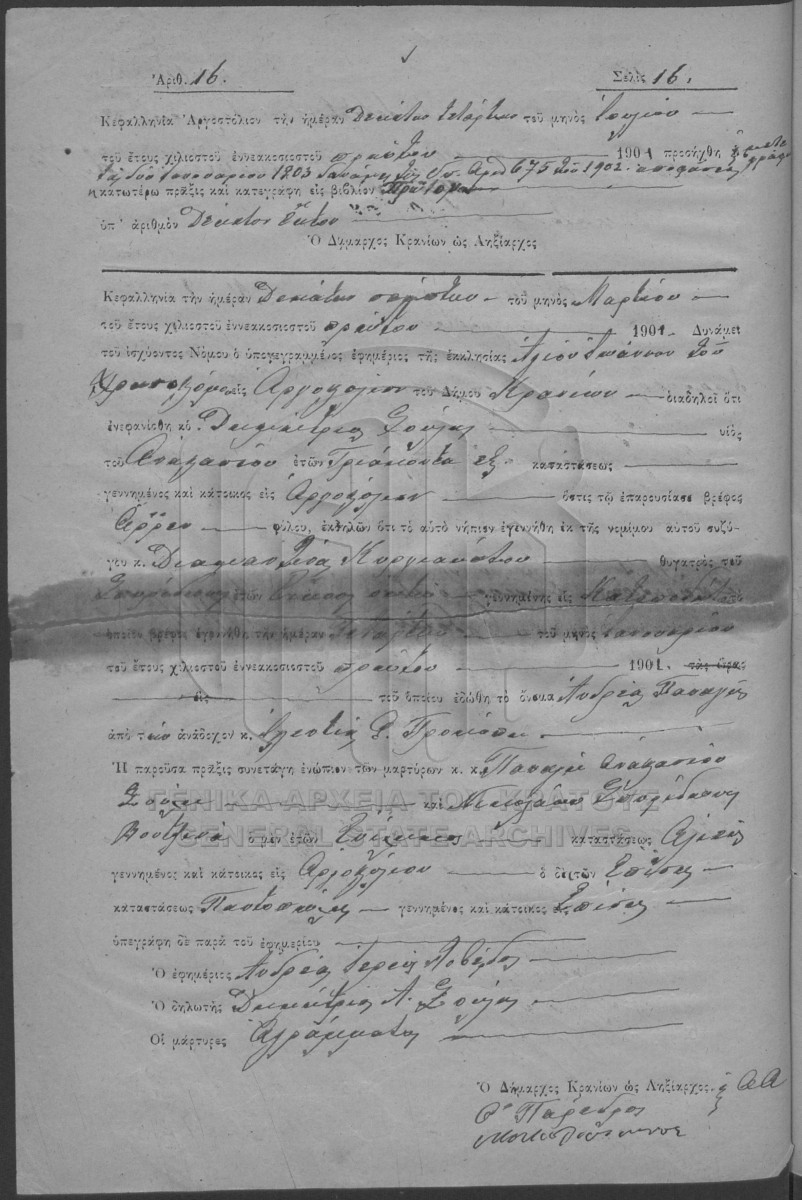 Ἀριθ. 16. Σελὶς 16.
Κεφαλληνία Ἀργοστόλιον τὴν ἡμέραν Δεκάτην τετάρτην τοῦ μηνὸς Ἰουλίου
τοῦ ἔτους χιλιοστοῦ ἐννεακοσιοστοῦ πρώτου 1901 προσήχθη
ὑπ' ἀριθ. 675 τοῦ 1902 ἀποφάσεως
κατωτέρω πρᾶξις καὶ κατεγράφη εἰς βιβλίον
ὑπ' ἀριθμὸν Δέκατον ἕκτον
Ὁ Δήμαρχος Κρανίων ὡς Ληξίαρχος
Κεφαλληνία τὴν ἡμέραν Δεκάτην πέμπτην τοῦ μηνὸς Μαρτίου
τοῦ ἔτους χιλιοστοῦ ἐννεακοσιοστοῦ πρώτου 1901. Δυνάμει
τοῦ ἰσχύοντος Νόμου ὁ ὑπογεγραμμένος ἐφημέριος τῆς ἐκκλησίας Ἁγίου Ἰωάννου τοῦ
Χρυσοστόμου εἰς Ἀργοστόλιον τοῦ Δήμου Κρανίων διαδηλοῖ ὅτι
ἐνεφανίσθη κὸ. Δημήτριος Σούλης υἱὸς
τοῦ Ἀναστασίου ἐτῶν Τριάκοντα ἓξ καταστάσεως
γεννημένος καὶ κάτοικος εἰς Ἀργοστόλιον ὅστις τῷ ἐπαρουσίασε βρέφος
Ἄρρεν φύλου, ἐκδηλῶν ὅτι τὸ αὐτὸ νήπιον ἐγεννήθη ἐκ τῆς νομίμου αὐτοῦ συζύ-
γου κ. Διαμαντίνα θυγατρὸς τοῦ
Σπυρίδωνος ἐτῶν Εἴκοσι ὀκτὼ γεννημένης εἰς τὸ
ὁποῖον βρέφος ἐγεννήθη τὴν ἡμέραν Τετάρτην τοῦ μηνὸς Ἰανουαρίου
τοῦ ἔτους χιλιοστοῦ ἐννεακοσιοστοῦ πρώτου 1901. τὰς ὥρας
εἰς τοῦ ὁποίου ἐδώθη τὸ ὄνομα Ἀνδρέας Παναγῆς
ἀπὸ τὸν ἀνάδοχον κ.
Ἡ παροῦσα πρᾶξις συνετάγη ἐνώπιον τῶν μαρτύρων κ. κ. Παναγῆ Ἀναστασίου
Σούλη καὶ Νικολάου Σπυρίδωνος
ὁ μὲν ἐτῶν καταστάσεως Ἁλιεὺς
γεννημένος καὶ κάτοικος εἰς Ἀργοστόλιον ὁ δὲ ἐτῶν Ἐπίσης
καταστάσεως Παντοπώλης γεννημένος καὶ κάτοικος εἰς Ἐπίσης
ὑπεγράφη δὲ παρὰ τοῦ ἐφημερίου
Ὁ ἐφημέριος Ἀνδρέας ἱερεὺς
Ὁ δηλωτὴς Δημήτριος Α. Σούλης
Οἱ μάρτυρες Ἀγράμματοι
Ὁ Δήμαρχος Κρανίων ὡς Ληξίαρχος.
Ὁ Πάρεδρος
ΓΕΝΙΚΑ ΑΡΧΕΙΑ ΤΟΥ ΚΡΑΤΟΥΣ
GENERAL STATE ARCHIVES